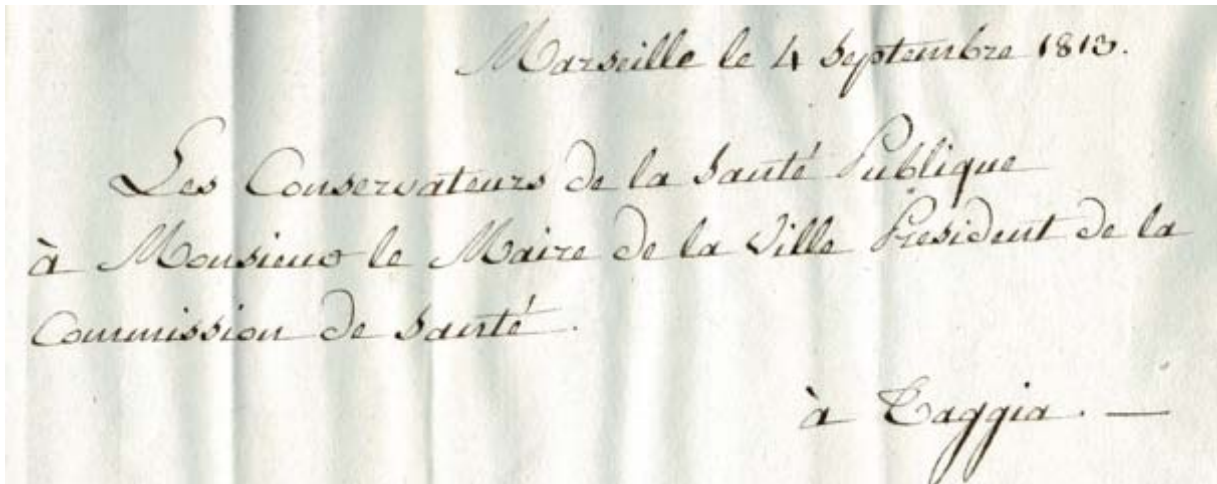 Marseille le 4 Septembre 1813.
Les Conservateurs de la Santé Publique
à Monsieur le Maire de la Ville President de la
Commission de Santé.
à Taggia. —